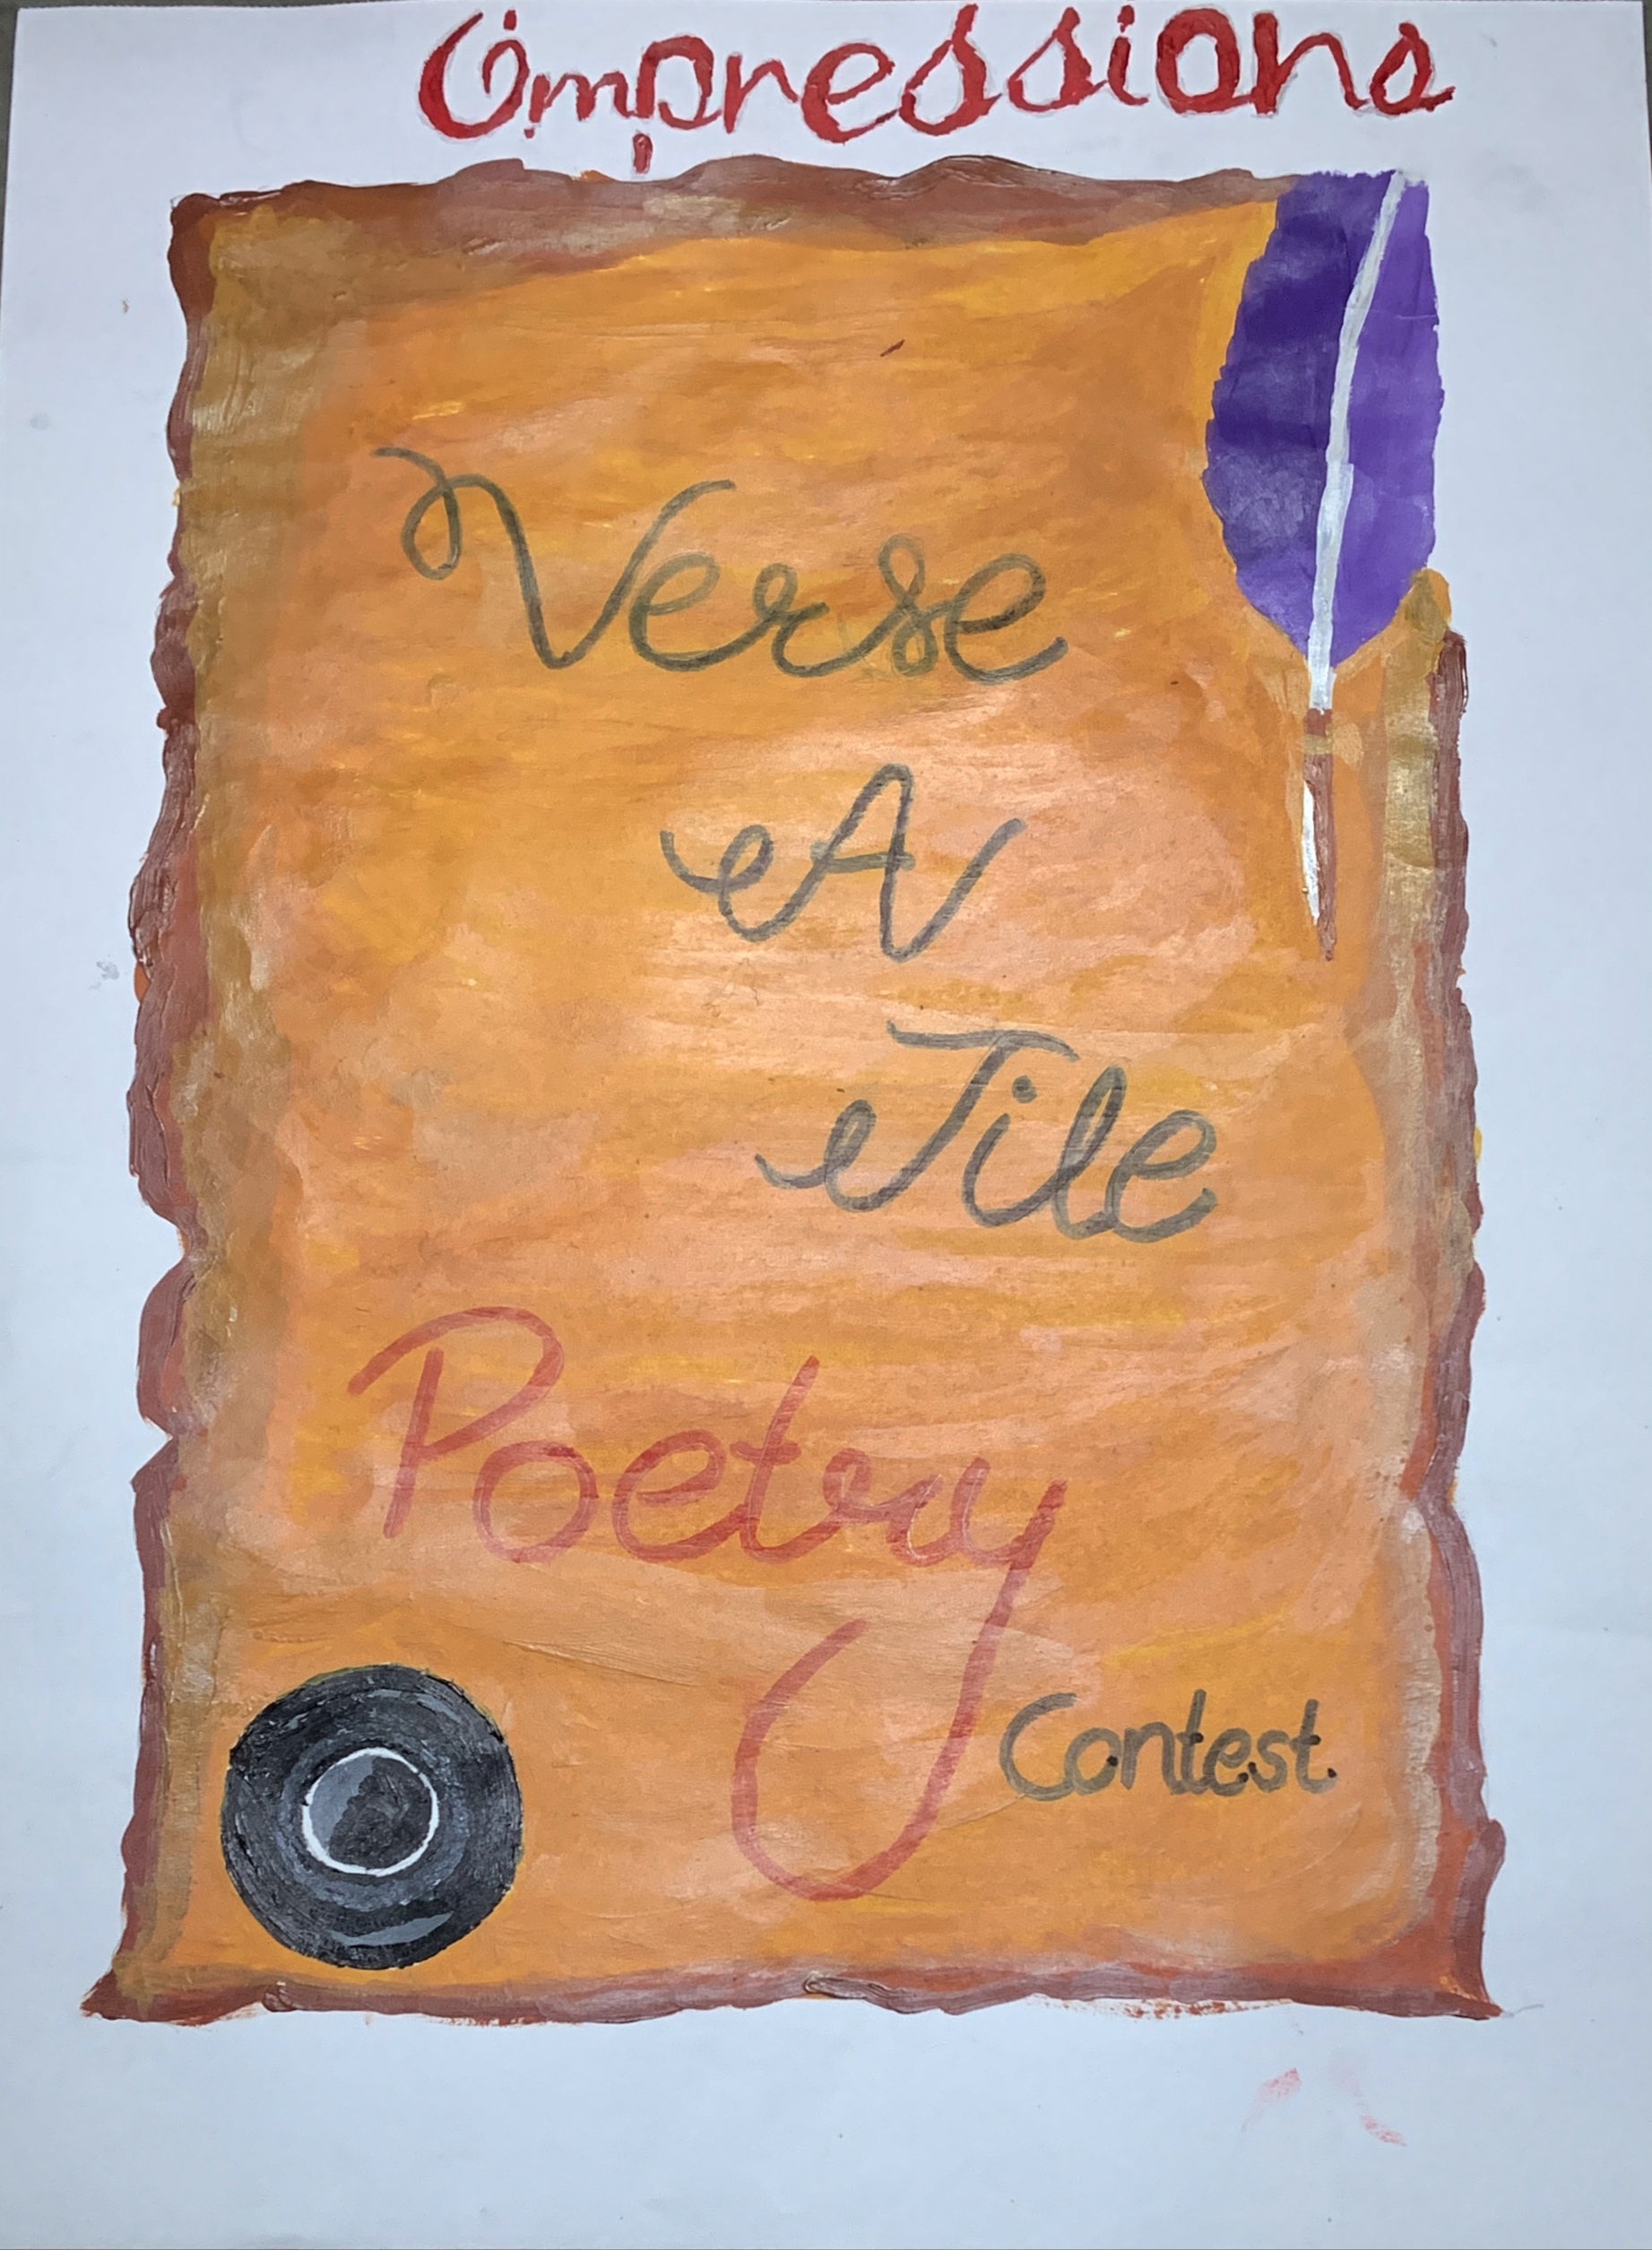 Impressions
Verse
A
Tile
Poetry
Contest